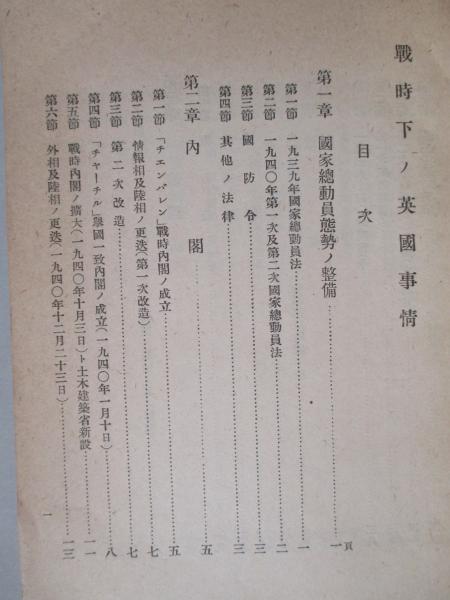 戰時下ノ英國事情
目次
第一章 國家總動員態勢ノ整備 一頁
第一節 一九三九年國家總動員法 一
第二節 一九四〇年第一次及第二次國家總動員法 二
第三節 國防令 三
第四節 其他ノ法律 三
第二章 內閣 五
第一節 「チエンバレン」戰時內閣ノ成立 五
第二節 情報相及陸相ノ更迭(第一次改造) 七
第三節 第二次改造 七
第四節 「チャーチル」擧國一致內閣ノ成立(一九四〇年一月十日) 八
第五節 戰時內閣ノ擴大(一九四〇年十月三日)ト土木建築省新設 一一
第六節 外相及陸相ノ更迭(一九四〇年十二月二十三日) 一三
一